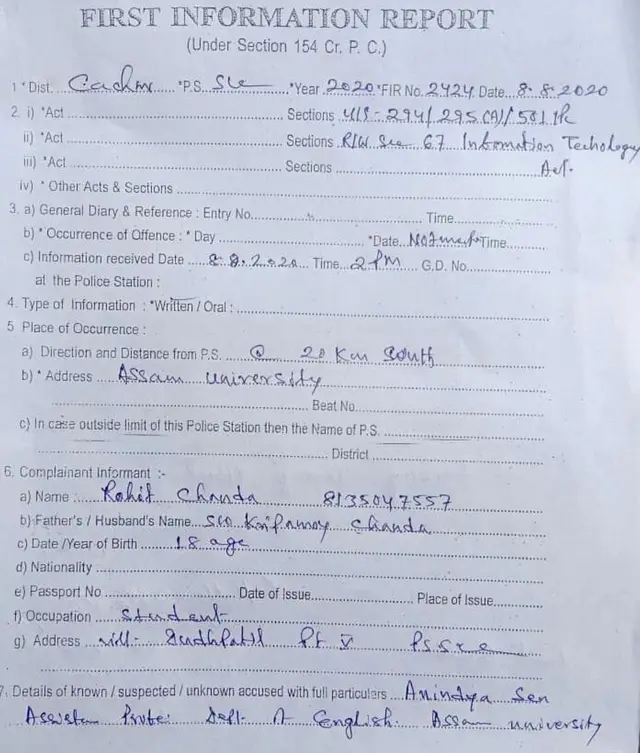 FIRST INFORMATION REPORT
(Under Section 154 Cr. P. C.)
1 * Dist. Cachar *P.S. *Year 2020 *FIR No. 2424 Date 8.8.2020
2. i) *Act Sections U/S - 294/295(A)/501 IPC
ii) *Act Sections R/W Sec 67 Information Techology
iii) *Act Sections Act.
iv) * Other Acts & Sections
3. a) General Diary & Reference : Entry No. Time
b) * Occurrence of Offence : * Day *Date Time
c) Information received Date 8.8.2020 Time 2 PM G.D. No.
at the Police Station :
4. Type of Information : *Written / Oral :
5 Place of Occurrence :
a) Direction and Distance from P.S. @ 20 Km South
b) * Address Assam University
Beat No.
c) In case outside limit of this Police Station then the Name of P.S.
District
6. Complainant Informant :-
a) Name : Rohit Chanda 8135047557
b) Father's / Husband's Name S/O Chanda
c) Date /Year of Birth 18 age
d) Nationality
e) Passport No Date of Issue Place of Issue
f) Occupation Student
g) Address vill- Pt V
7. Details of known / suspected / unknown accused with full particulars Anindya Sen
Dept. English. Assam University